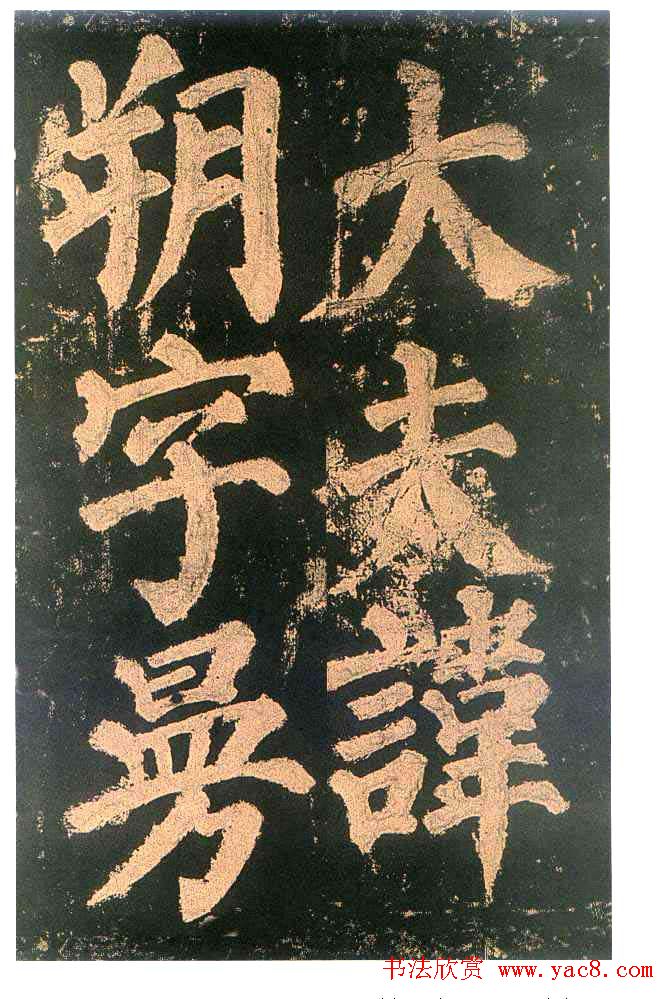 大夫諱
朔字曼
书法欣赏 www.yac8.com